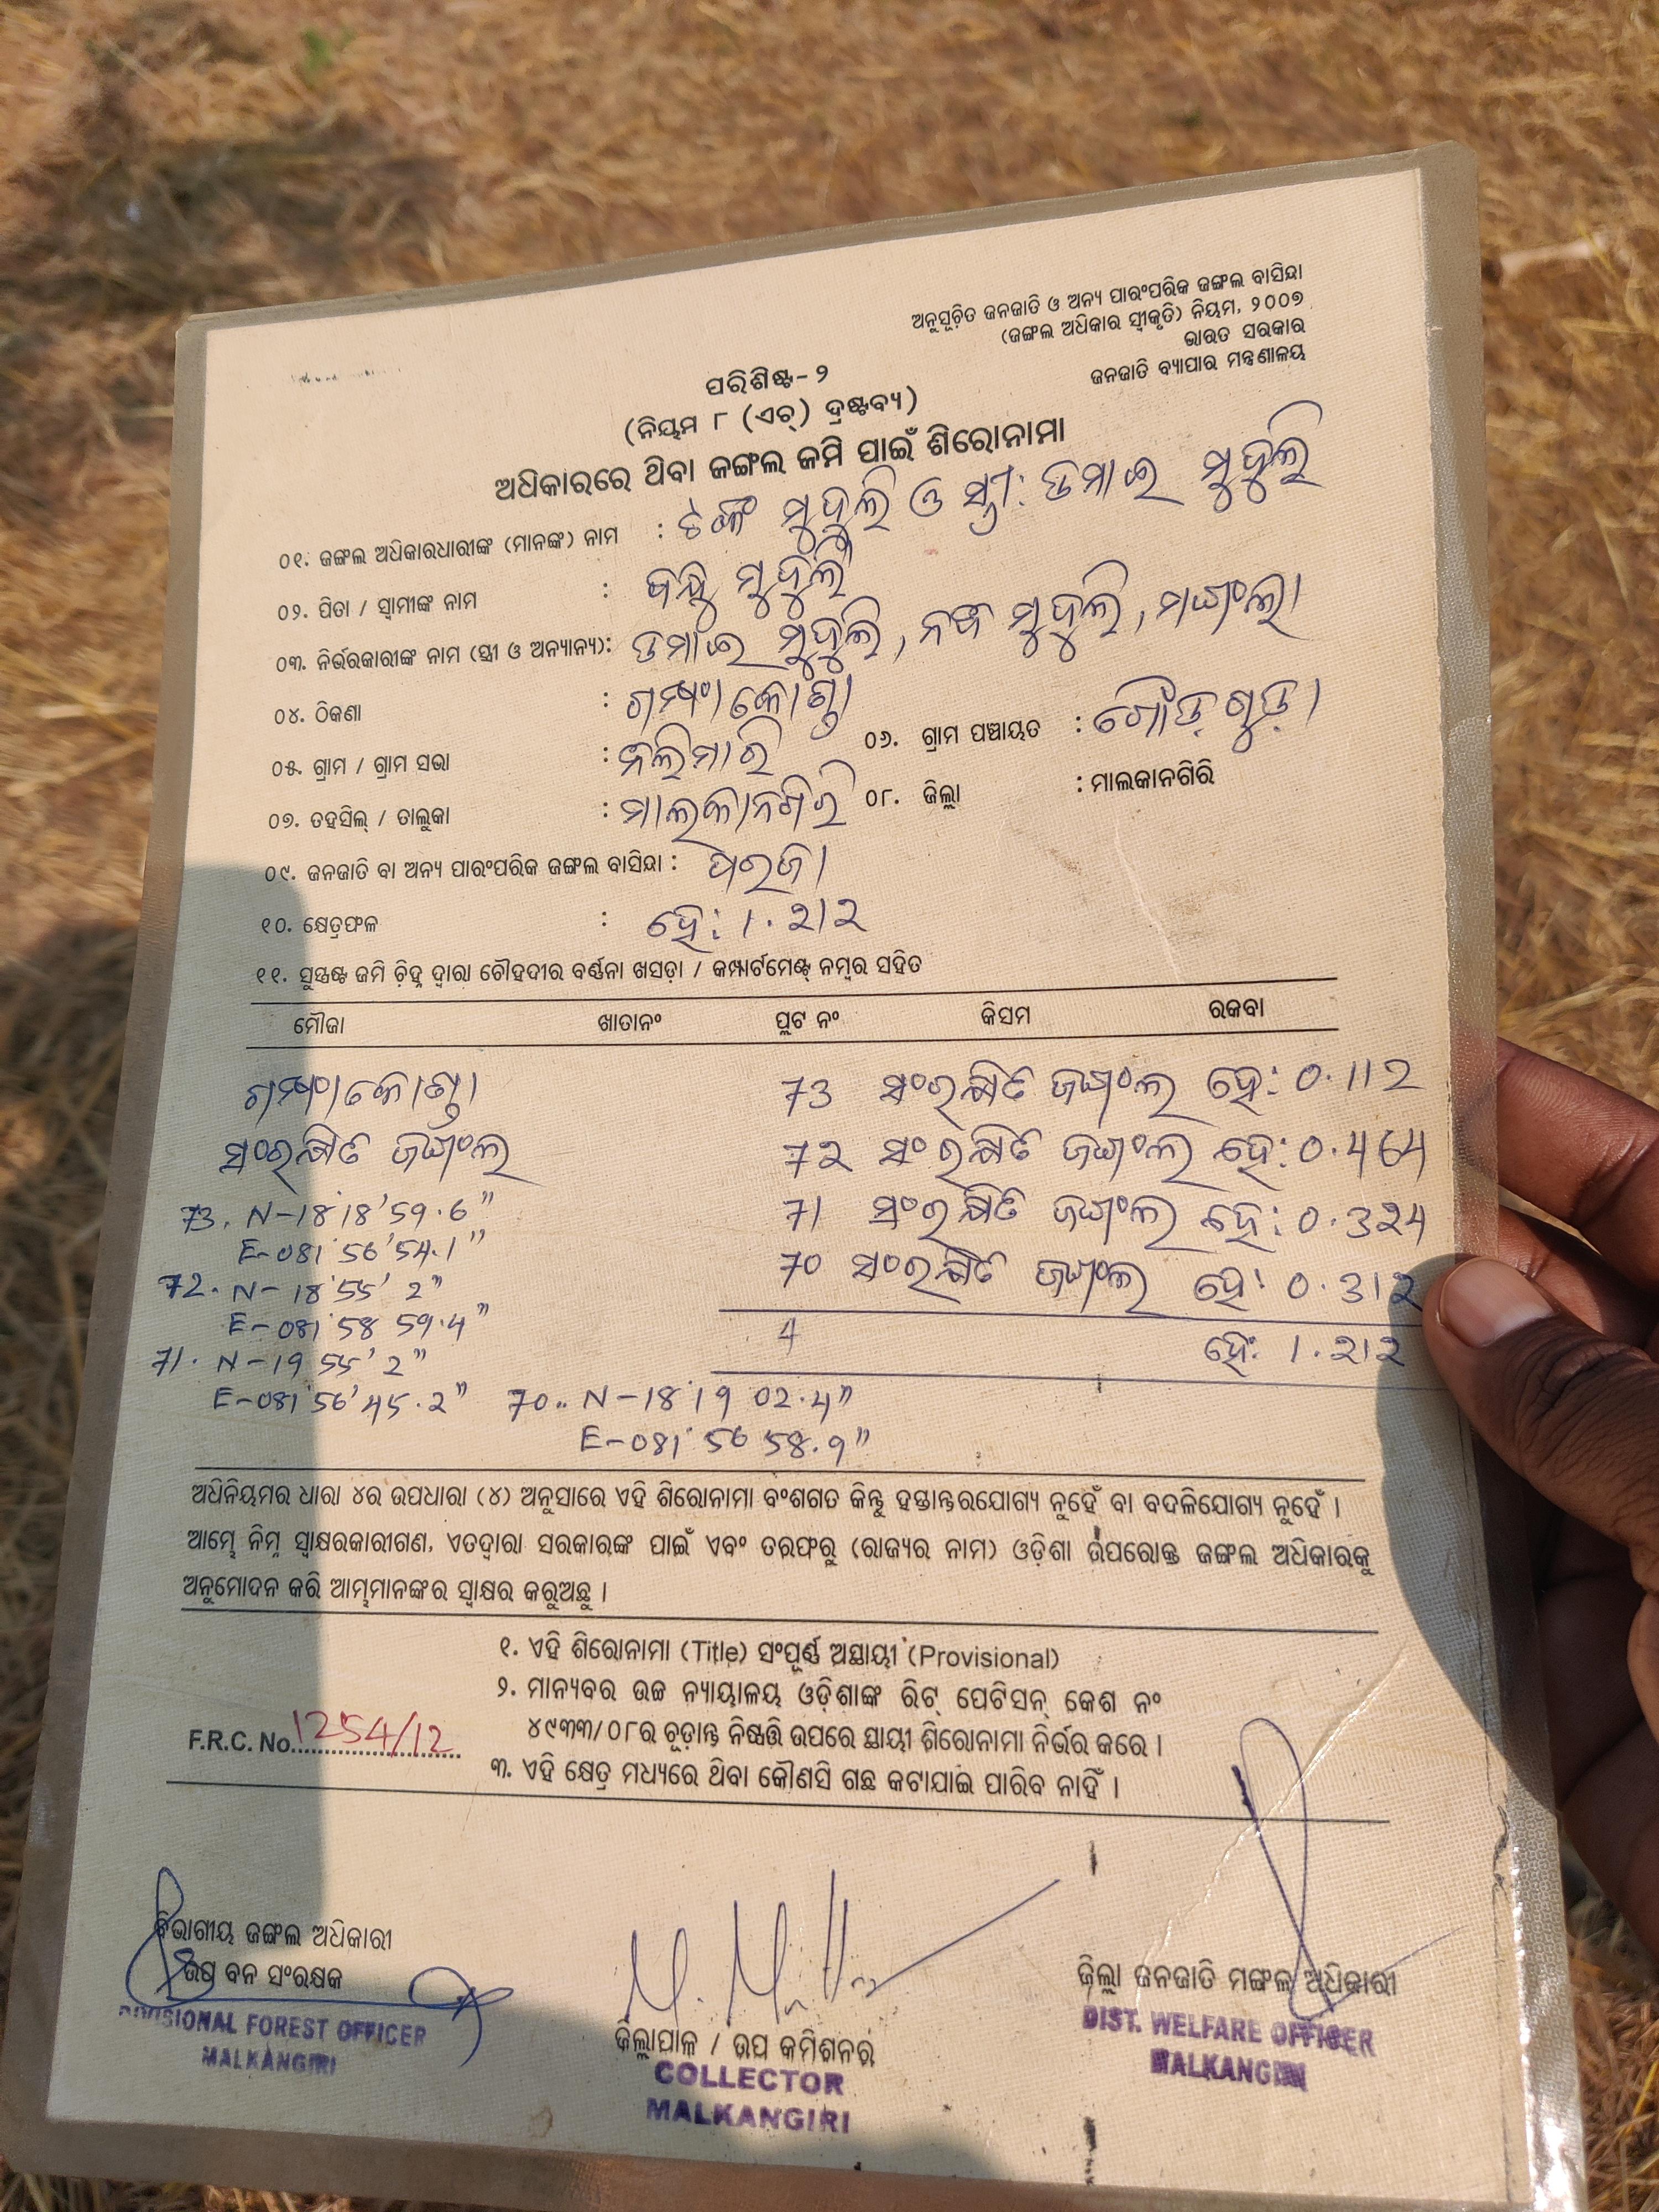 ଅନୁସୂଚିତ ଜନଜାତି ଓ ଅନ୍ୟ ପାରଂପରିକ ଜଙ୍ଗଲ ବାସିନ୍ଦା
(ଜଙ୍ଗଲ ଅଧିକାର ସ୍ୱୀକୃତି) ନିୟମ, ୨୦୦୭
ଭାରତ ସରକାର
ଜନଜାତି ବ୍ୟାପାର ମନ୍ତ୍ରଣାଳୟ
ପରିଶିଷ୍ଟ-୨
(ନିୟମ ୮ (ଏଚ୍) ଦ୍ରଷ୍ଟବ୍ୟ)
ଅଧିକାରରେ ଥିବା ଜଙ୍ଗଲ ଜମି ପାଇଁ ଶିରୋନାମା
୦୧. ଜଙ୍ଗଲ ଅଧିକାରଧାରୀଙ୍କ (ମାନଙ୍କ) ନାମ : ଟଙ୍କ ମୁଦୁଲି ଓ ସ୍ତ୍ରୀ: ଡମାଇ ମୁଦୁଲି
୦୨. ପିତା / ସ୍ୱାମୀଙ୍କ ନାମ : ବନ୍ଧୁ ମୁଦୁଲି
୦୩. ନିର୍ଭରକାରୀଙ୍କ ନାମ (ସ୍ତ୍ରୀ ଓ ଅନ୍ୟାନ୍ୟ): ଡମାଇ ମୁଦୁଲି, ମୁଦୁଲି, ମଙ୍ଗଳା
୦୪. ଠିକଣା :
୦୫. ଗ୍ରାମ / ଗ୍ରାମ ସଭା : ୦୬. ଗ୍ରାମ ପଞ୍ଚାୟତ : ଗୌଡ଼ଗୁଡ଼ା
୦୭. ତହସିଲ୍ / ତାଲୁକା : ମାଲକାନଗିରି ୦୮. ଜିଲ୍ଲା : ମାଲକାନଗିରି
୦୯. ଜନଜାତି ବା ଅନ୍ୟ ପାରଂପରିକ ଜଙ୍ଗଲ ବାସିନ୍ଦା : ପରଜା
୧୦. କ୍ଷେତ୍ରଫଳ : ହେ: 1.212
୧୧. ସୁସ୍ପଷ୍ଟ ଜମି ଚିହ୍ନ ଦ୍ୱାରା ଚୌହଦୀର ବର୍ଣ୍ଣନା ଖସଡ଼ା / କମ୍ପାର୍ଟମେଣ୍ଟ୍ ନମ୍ବର ସହିତ
ମୌଜା ଖାତାନଂ ପ୍ଲଟ ନଂ କିସମ ରକବା
73 ସଂରକ୍ଷିତ ଜଙ୍ଗଲ ହେ: 0.112
ସଂରକ୍ଷିତ ଜଙ୍ଗଲ 72 ସଂରକ୍ଷିତ ଜଙ୍ଗଲ ହେ: 0.464
73. N-18°18'59.6" 71 ସଂରକ୍ଷିତ ଜଙ୍ଗଲ ହେ: 0.324
E-081°56'54.1" 70 ସଂରକ୍ଷିତ ଜଙ୍ଗଲ ହେ: 0.312
72. N-18°55' 2"
E-081°58 59.4" 4 ହେ: 1.212
71. N-19 55' 2"
E-081°56'45.2" 70.. N-18°19 02.4"
E-081°56 58.9"
ଅଧିନିୟମର ଧାରା ୪ର ଉପଧାରା (୪) ଅନୁସାରେ ଏହି ଶିରୋନାମା ବଂଶଗତ କିନ୍ତୁ ହସ୍ତାନ୍ତରଯୋଗ୍ୟ ନୁହେଁ ବା ବଦଳିଯୋଗ୍ୟ ନୁହେଁ ।
ଆମ୍ଭେ ନିମ୍ନ ସ୍ୱାକ୍ଷରକାରୀଗଣ, ଏତଦ୍ୱାରା ସରକାରଙ୍କ ପାଇଁ ଏବଂ ତରଫରୁ (ରାଜ୍ୟର ନାମ) ଓଡ଼ିଶା ଉପରୋକ୍ତ ଜଙ୍ଗଲ ଅଧିକାରକୁ
ଅନୁମୋଦନ କରି ଆମ୍ଭମାନଙ୍କର ସ୍ୱାକ୍ଷର କରୁଅଛୁ ।
୧. ଏହି ଶିରୋନାମା (Title) ସଂପୂର୍ଣ୍ଣ ଅସ୍ଥାୟୀ (Provisional)
୨. ମାନ୍ୟବର ଉଚ୍ଚ ନ୍ୟାୟାଳୟ ଓଡ଼ିଶାଙ୍କ ରିଟ୍ ପେଟିସନ୍ କେଶ ନଂ
୪୯୩୩/୦୮ର ଚୂଡ଼ାନ୍ତ ନିଷ୍ପତ୍ତି ଉପରେ ସ୍ଥାୟୀ ଶିରୋନାମା ନିର୍ଭର କରେ ।
F.R.C. No. 1254/12
୩. ଏହି କ୍ଷେତ୍ର ମଧ୍ୟରେ ଥିବା କୌଣସି ଗଛ କଟାଯାଇ ପାରିବ ନାହିଁ ।
ବିଭାଗୀୟ ଜଙ୍ଗଲ ଅଧିକାରୀ
ଉପ ବନ ସଂରକ୍ଷକ
DIVISIONAL FOREST OFFICER
MALKANGIRI
ଜିଲ୍ଲାପାଳ / ଉପ କମିଶନର
COLLECTOR
MALKANGIRI
ଜିଲ୍ଲା ଜନଜାତି ମଙ୍ଗଳ ଅଧିକାରୀ
DIST. WELFARE OFFICER
MALKANGIRI